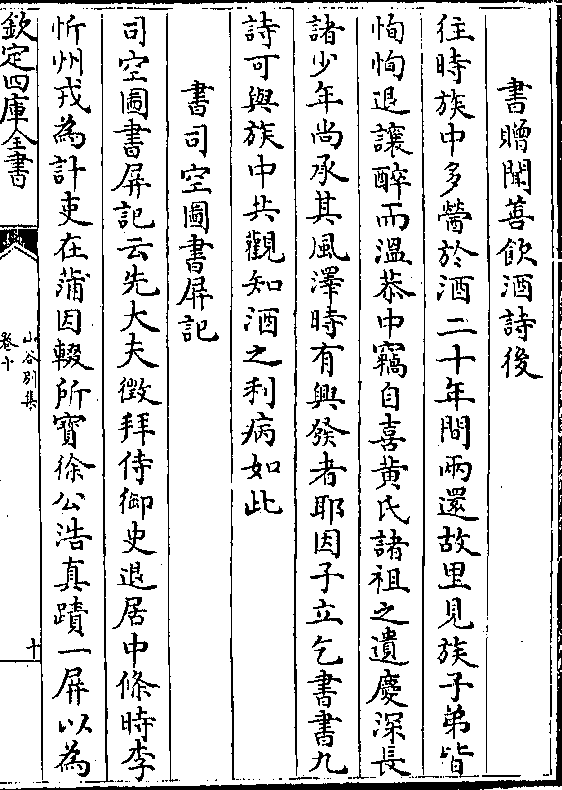 書贈聞善飲酒詩後
往時族中多醟於酒二十年間兩還故里見族子弟皆
恂恂退讓醉而溫恭中竊自喜黄氏諸祖之遺慶深長
諸少年尚承其風澤時有興發者耶因子立乞書書九
詩可與族中共觀知酒之利病如此
書司空圖書屏記
司空圖書屏記云先大夫徴拜侍御史退居中條時李
忻州戎為計吏在蒲因輟所寳徐公浩真蹟一屏以為
欽定四庫全書
山谷别集
卷十
十